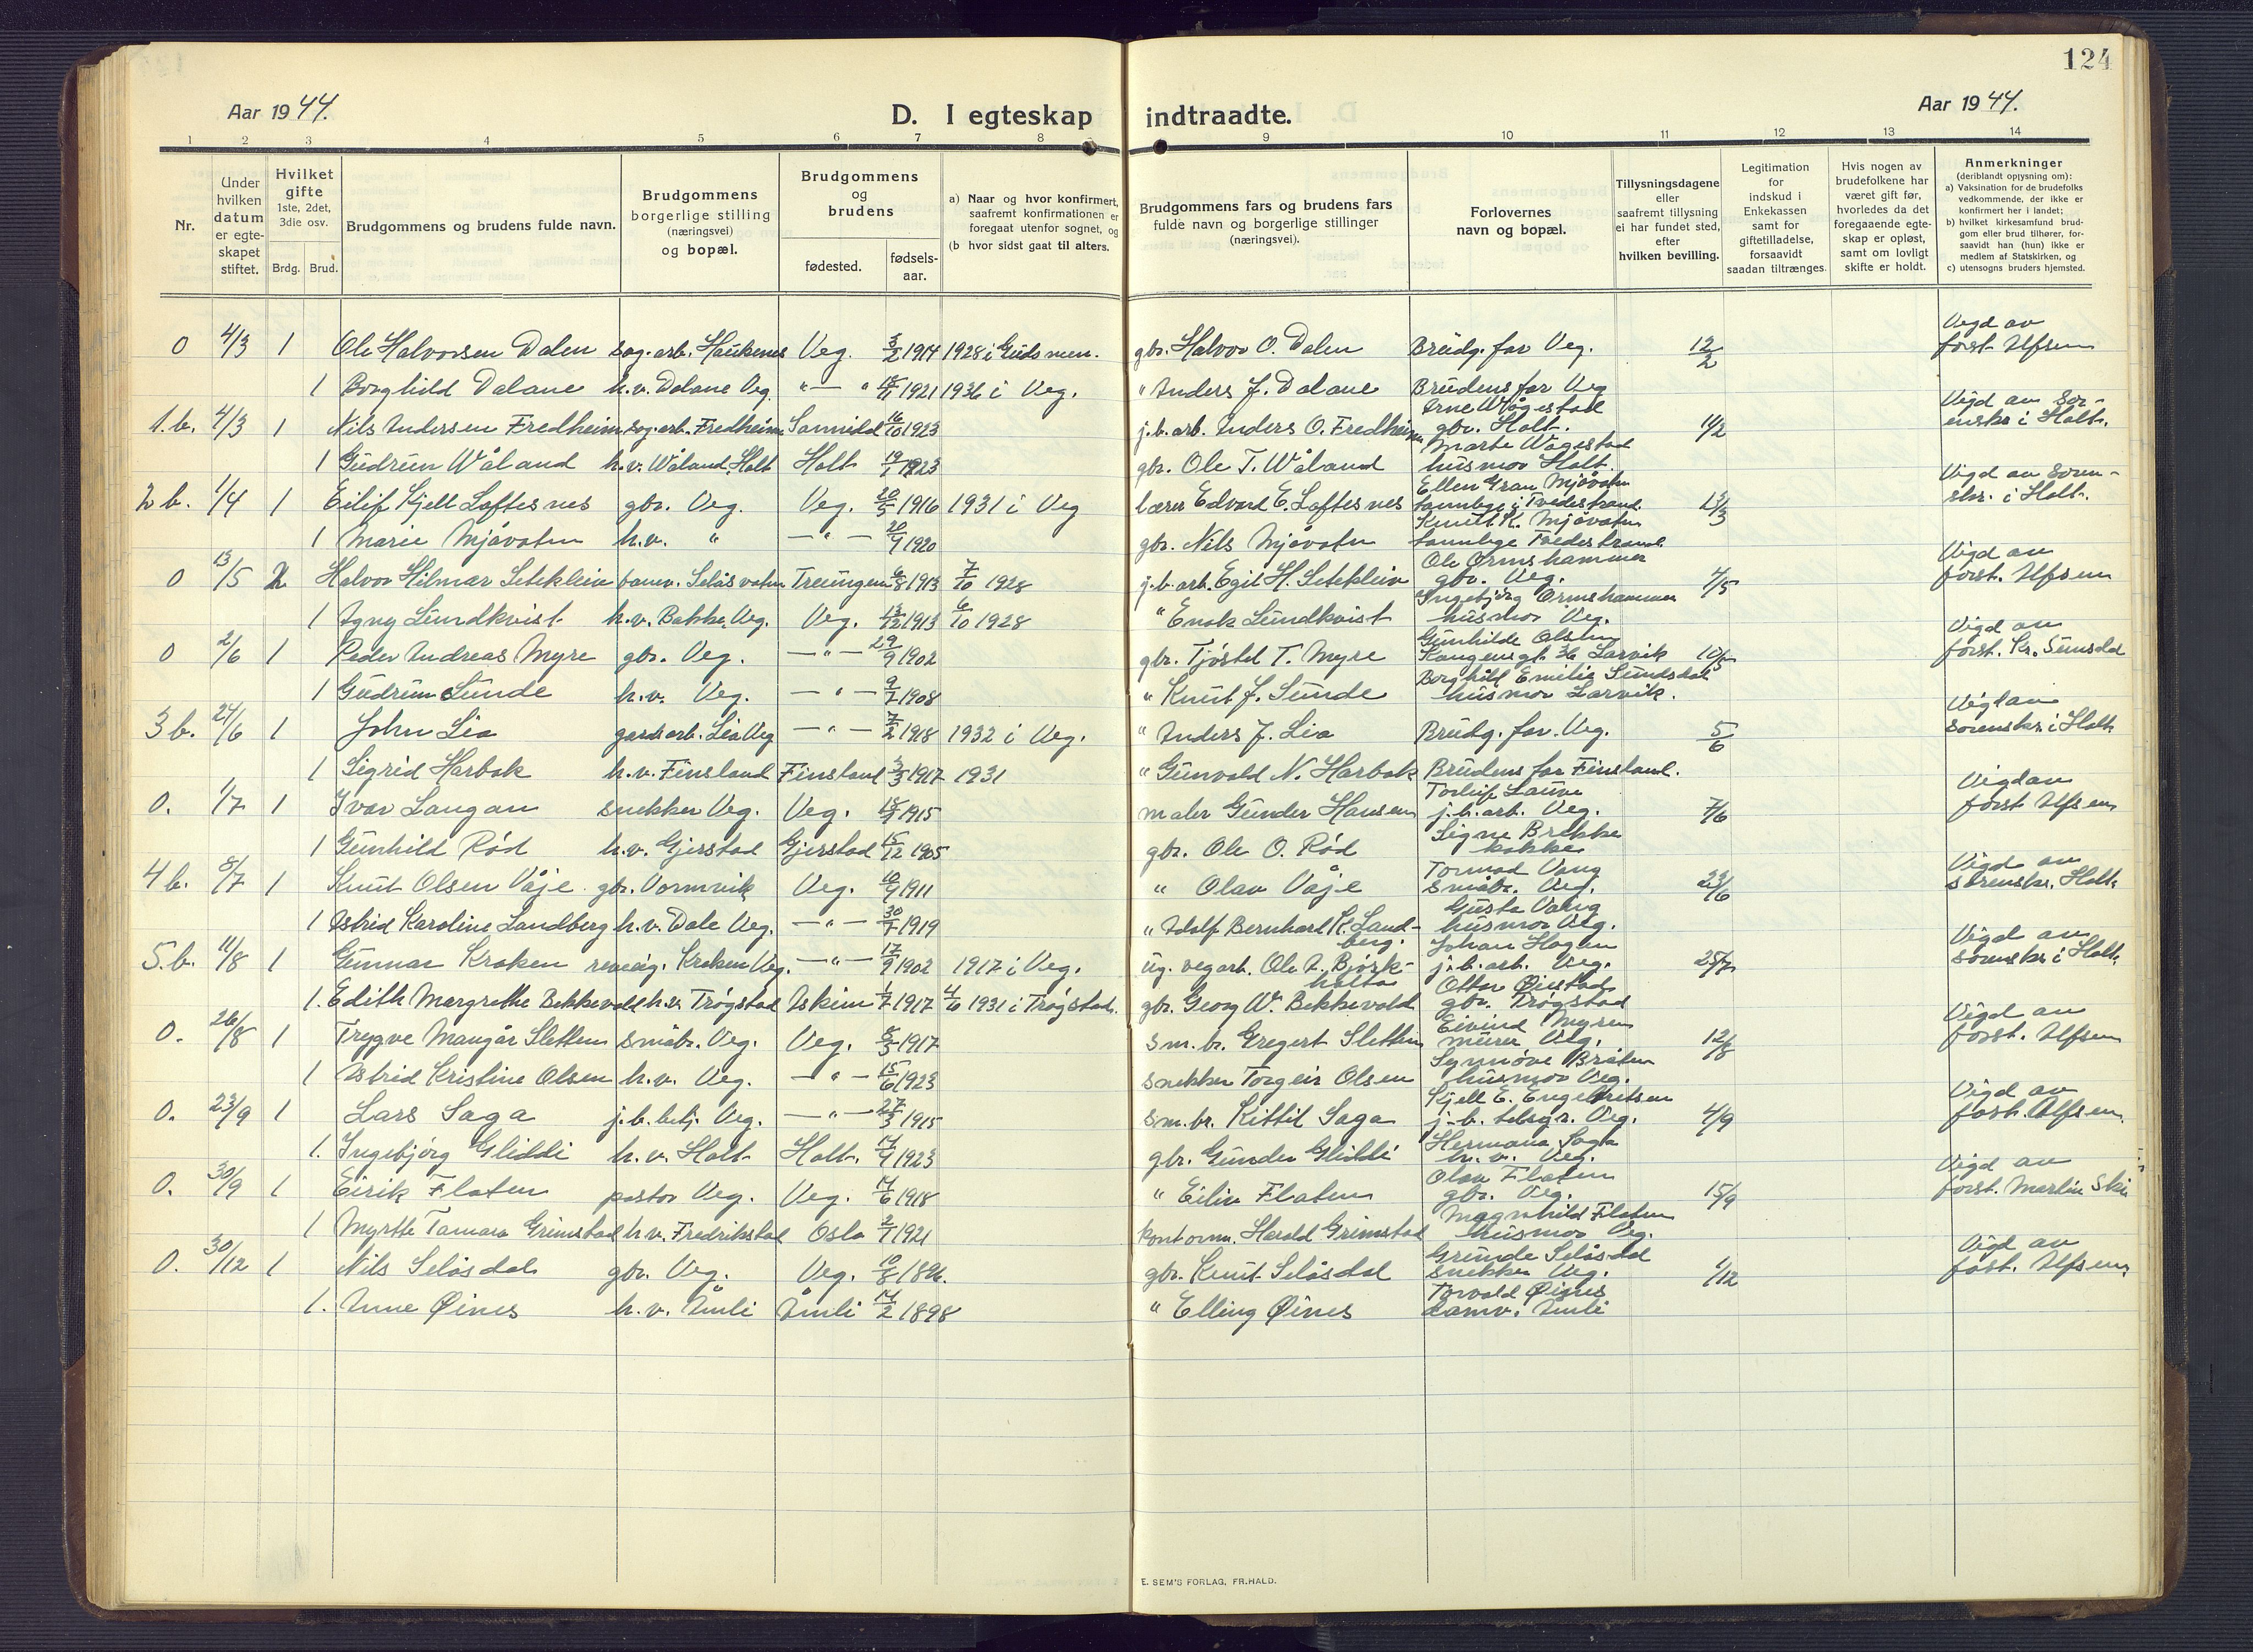 124
Aar 1944.
D. I egteskap indtraadte.
Aar 1944.
1 2 3 4 5 6 7 8 9 10 11 12 13 14
Nr.
Under hvilken datum er egte-skapet stiftet.
Hvilket gifte 1ste, 2det, 3die osv.
Brdg. Brud.
Brudgommens og brudens fulde navn.
Brudgommens borgerlige stilling (næringsvei) og bopæl.
Brudgommens og brudens
fødested.
fødsels-aar.
a) Naar og hvor konfirmert, saafremt konfirmationen er foregaat utenfor sognet, og (b hvor sidst gaat til alters.
Brudgommens fars og brudens fars fulde navn og borgerlige stillinger (næringsvei).
Forlovernes navn og bopæl.
Tillysningsdagene eller saafremt tillysning ei har fundet sted, efter hvilken bevilling.
Legitimation for indskud i Enkekassen samt for giftetilladelse, forsaavidt saadan tiltrænges.
Hvis nogen av brudefolkene har været gift før, hvorledes da det foregaaende egte-skap er opløst, samt om lovligt skifte er holdt.
Anmerkninger (deriblandt opjysning om): a) Vaksination for de brudefolks vedkommende, der ikke er konfirmert her i landet; b) hvilket kirkesamfund brud-gom eller brud tilhører, for-saavidt han (hun) ikke er medlem af Statskirken, og c) utensogns bruders hjemsted.
0 4/3 1 Ole Halvorsen Dalen sag.arb. Haukenes Veg. 3/2 1914 1928 i Gudsmen. gbr. Halvor O. Dalen Brudg. far Veg. 12/2 Vigd av forst. Alfsem
1 Borghild Dalane h.v. Dalane Veg. " — " 1921 1936 i Veg. " Anders J. Dalane Brudens far Veg
1.b. 4/3 1 Nils Andersen Fredheim sag.arb. Fredheim Sannidal 16/10 1923 j.b.arb. Anders O. Fredheim Arne Wågestad gbr. Holt. 14/2 Vigd av Sor-enskr i Holt.
1 Gudrun Wåland h.v. Wåland, Holt Holt 19/1 1923 gbr. Ole T. Wåland Marte Wågestad husmor Holt.
2 b. 1/4 1 Eilif Kjell Loftesnes gbr. Veg. Veg. 20/5 1916 1931 i Veg lærer Edvard E. Loftesnes Ellen Gran Mjåvatn Tvedestrand 13/3 Vigd av Soren-skr. i Holt.
1 Marie Mjåvatn h.v. " — " — 20/9 1920 gbr. Nils Mjåvatn Knut K. Mjåvatn Tvedestrand
0 13/5 2 Halvor Hilmar Setekleiv banev. Selåsvatn Treungen 6/8 1913 7/10 1928 j.b.arb. Egil H. Setekleiv Ole Ormshammer gbr. Veg. 4/5 Vigd av forst. Alfsem
1 Agny Lundkvist h.v. Bakke, Veg. Veg. 13/12 1913 6/10 1928 " Enok Lundkvist Ingebjørg Ormshammer husmor Veg.
0 2/6 1 Peder Andreas Myre gbr. Veg. — " — 29/9 1902 gbr. Tjøstel T. Myre Gunhilde Olsen Kongensgt. 36 Larvik Vigd av forst. Kr. Sunsdal
1 Gudrun Sunde h.v. Veg. — " — 9/7 1908 " Knut J. Sunde Borghild Emilie Sundsdal husmor Larvik.
3 b. 24/6 1 John Lia gardsarb. Lia Veg — " — 7/2 1918 1932 i Veg. " Anders J. Lia Brudg. far. Veg. 5/6 Vigd av sorenskr. i Holt
1 Sigrid Harbak h.v. Finsland Finsland 1917 1931 " Gunvald N. Harbak Brudens far Finsland.
0. 1/7 1 Ivar Langan snekker Veg. Veg. 1915 maler Gunder Hansen Torleif Lauve j.b.arb. Veg. 7/6 Vigd av forst Alfsem
1 Gunhild Rød h.v. Gjerstad Gjerstad 15/12 1905 gbr. Ole O. Rød Signe Brekke kokke
4 b. 8/7 1 Knut Olsen Våje gbr. Vormvik Veg. 10/9 1911 " Olav Våje Tormod Vang småbr. Veg. 23/6 Vigd av sorenskr. Holt.
1 Astrid Karoline Landberg h.v. Dale Veg. — " — 30/7 1919 " Adolf Bernhard K. Land-berg. Gusta Vang husmor Veg.
5.b. 11/8 1 Gunnar Kroken Kroken Veg. — " — 17/9 1902 1917 i Veg. ug. vegarb. Ole A. Bjørk-holta Johan Hagen j.b.arb. Veg. 25/7 Vigd av sorenskr i Holt.
1. Edith Margrethe Bekkevold h.v. Trøgstad Askim 1/7 1917 4/10 1931 i Trøgstad. gbr. Georg W. Bekkevold Ottar Øistad gbr. Trøgstad
0. 26/8 1 Trygve Mangår Sletten småbr. Veg. Veg. 8/3 1917 sm.br. Gregert Sletten Eivind Myren murer Veg. 12/8 Vigd av forst. Alfsem
1 Astrid Kristine Olsen h.v. Veg. — " — 15/6 1923 snekker Torgeir Olsen Synnøve Bråten husmor Veg.
0. 23/9 1 Lars Saga j.b.betj. Veg. — " — 27/3 1915 sm.br. Kittil Saga Kjell E. Engebretsen j.b. telegr. Veg. 4/9 Vigd av forst. Alfsem
1. Ingebjørg Gliddi h.v. Holt Holt. 1923 gbr. Gunder Gliddi Hermana Saga h.v. Veg.
0. 30/9 1 Eirik Flaten pastor Veg. Veg. 14/6 1918 " Eiliv Flaten Olav Flaten gbr. Veg. 15/9 Vigd av forst. Martin Ski
1 Myrtle Tamara Grimstad h.v. Fredrikstad Oslo 2/7 1921 kontorm. Harald Grimstad Magnhild Flaten husmor Veg.
0. 30/12 1 Nils Selåsdal gbr. Veg. Veg. 10/8 1896. gbr. Knut Selåsdal Grunde Selåsdal snekker Veg. Vigd av forst. Alfsem
1. Anne Øines h.v. Åmli Åmli 14/2 1898 " Elling Øines Torvald Øines Åmli
E. SEM'S FORLAG, FR.HALD.